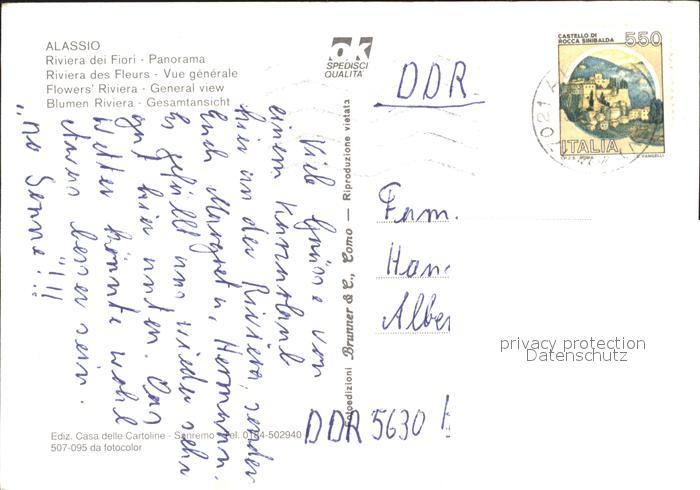 ALASSIO
Riviera dei Fiori - Panorama
Riviera des Fleurs - Vue générale
Flowers' Riviera - General view
Blumen Riviera - Gesamtansicht
ok
SPEDISCI
QUALITA'
CASTELLO DI
ROCCA SINIBALDA
550
ITALIA
I.P.Z.S. ROMA
E. VANGELLI
DDR
Viele Grüsse von
einem Kurzurlaub
hier an der Riviera, senden
Euch Margret u. Hermann.
Es gefällt uns wieder sehr
gut hier unten. Das
Wetter könnte wohl
etwas besser sein.
"no Sonne"!!!
Fotoedizioni Brunner & C., Como — Riproduzione vietata
Fam.
Han
Albe
DDR 5630 H
privacy protection
Datenschutz
Ediz. Casa delle Cartoline - Sanremo - Tel. 0184-502940
507-095 da fotocolor